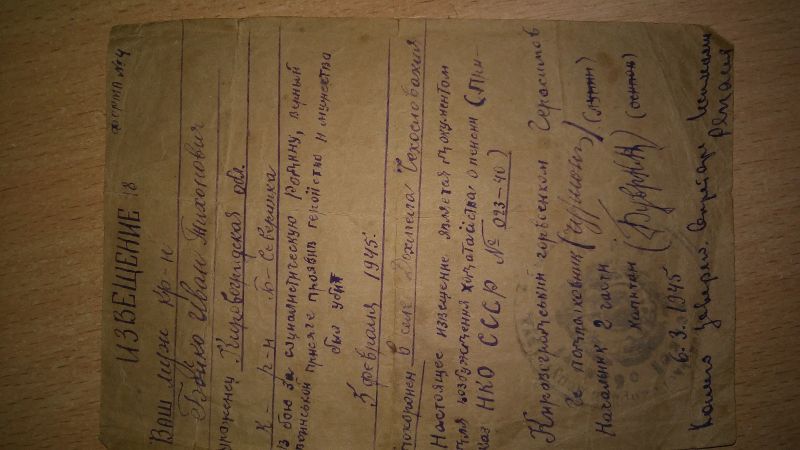 Форма №4
ИЗВЕЩЕНИЕ 18
Ваш муж кр-ц
Бойко Иван Тихонович
уроженец Кировоградская обл.
К- р-н Б-Северинка
в бою за социалистическую Родину, верный
воинской присяге проявив геройство и мужество
был убит
5 февраля 1945.
похоронен в селе Чехословакия
Настоящее извещение является документом
для возбуждения ходатайства о пенсии (При-
каз НКО СССР № 023-40)
Кировоградский горвоенком Герасимов
подполковник
Начальник 2 части
капитан
6.3.1945
Копию заверил.